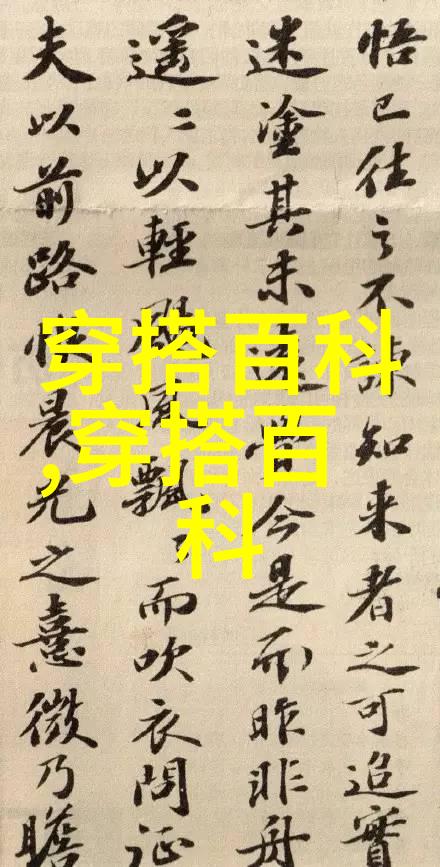 悟已往之不諫知来者之可追實
迷塗其未遠覺今是而昨非舟
遥〻以輕颺風飄〻而吹衣問征
夫以前路恨晨光之熹微乃瞻
穿搭百科
,穿搭百
科